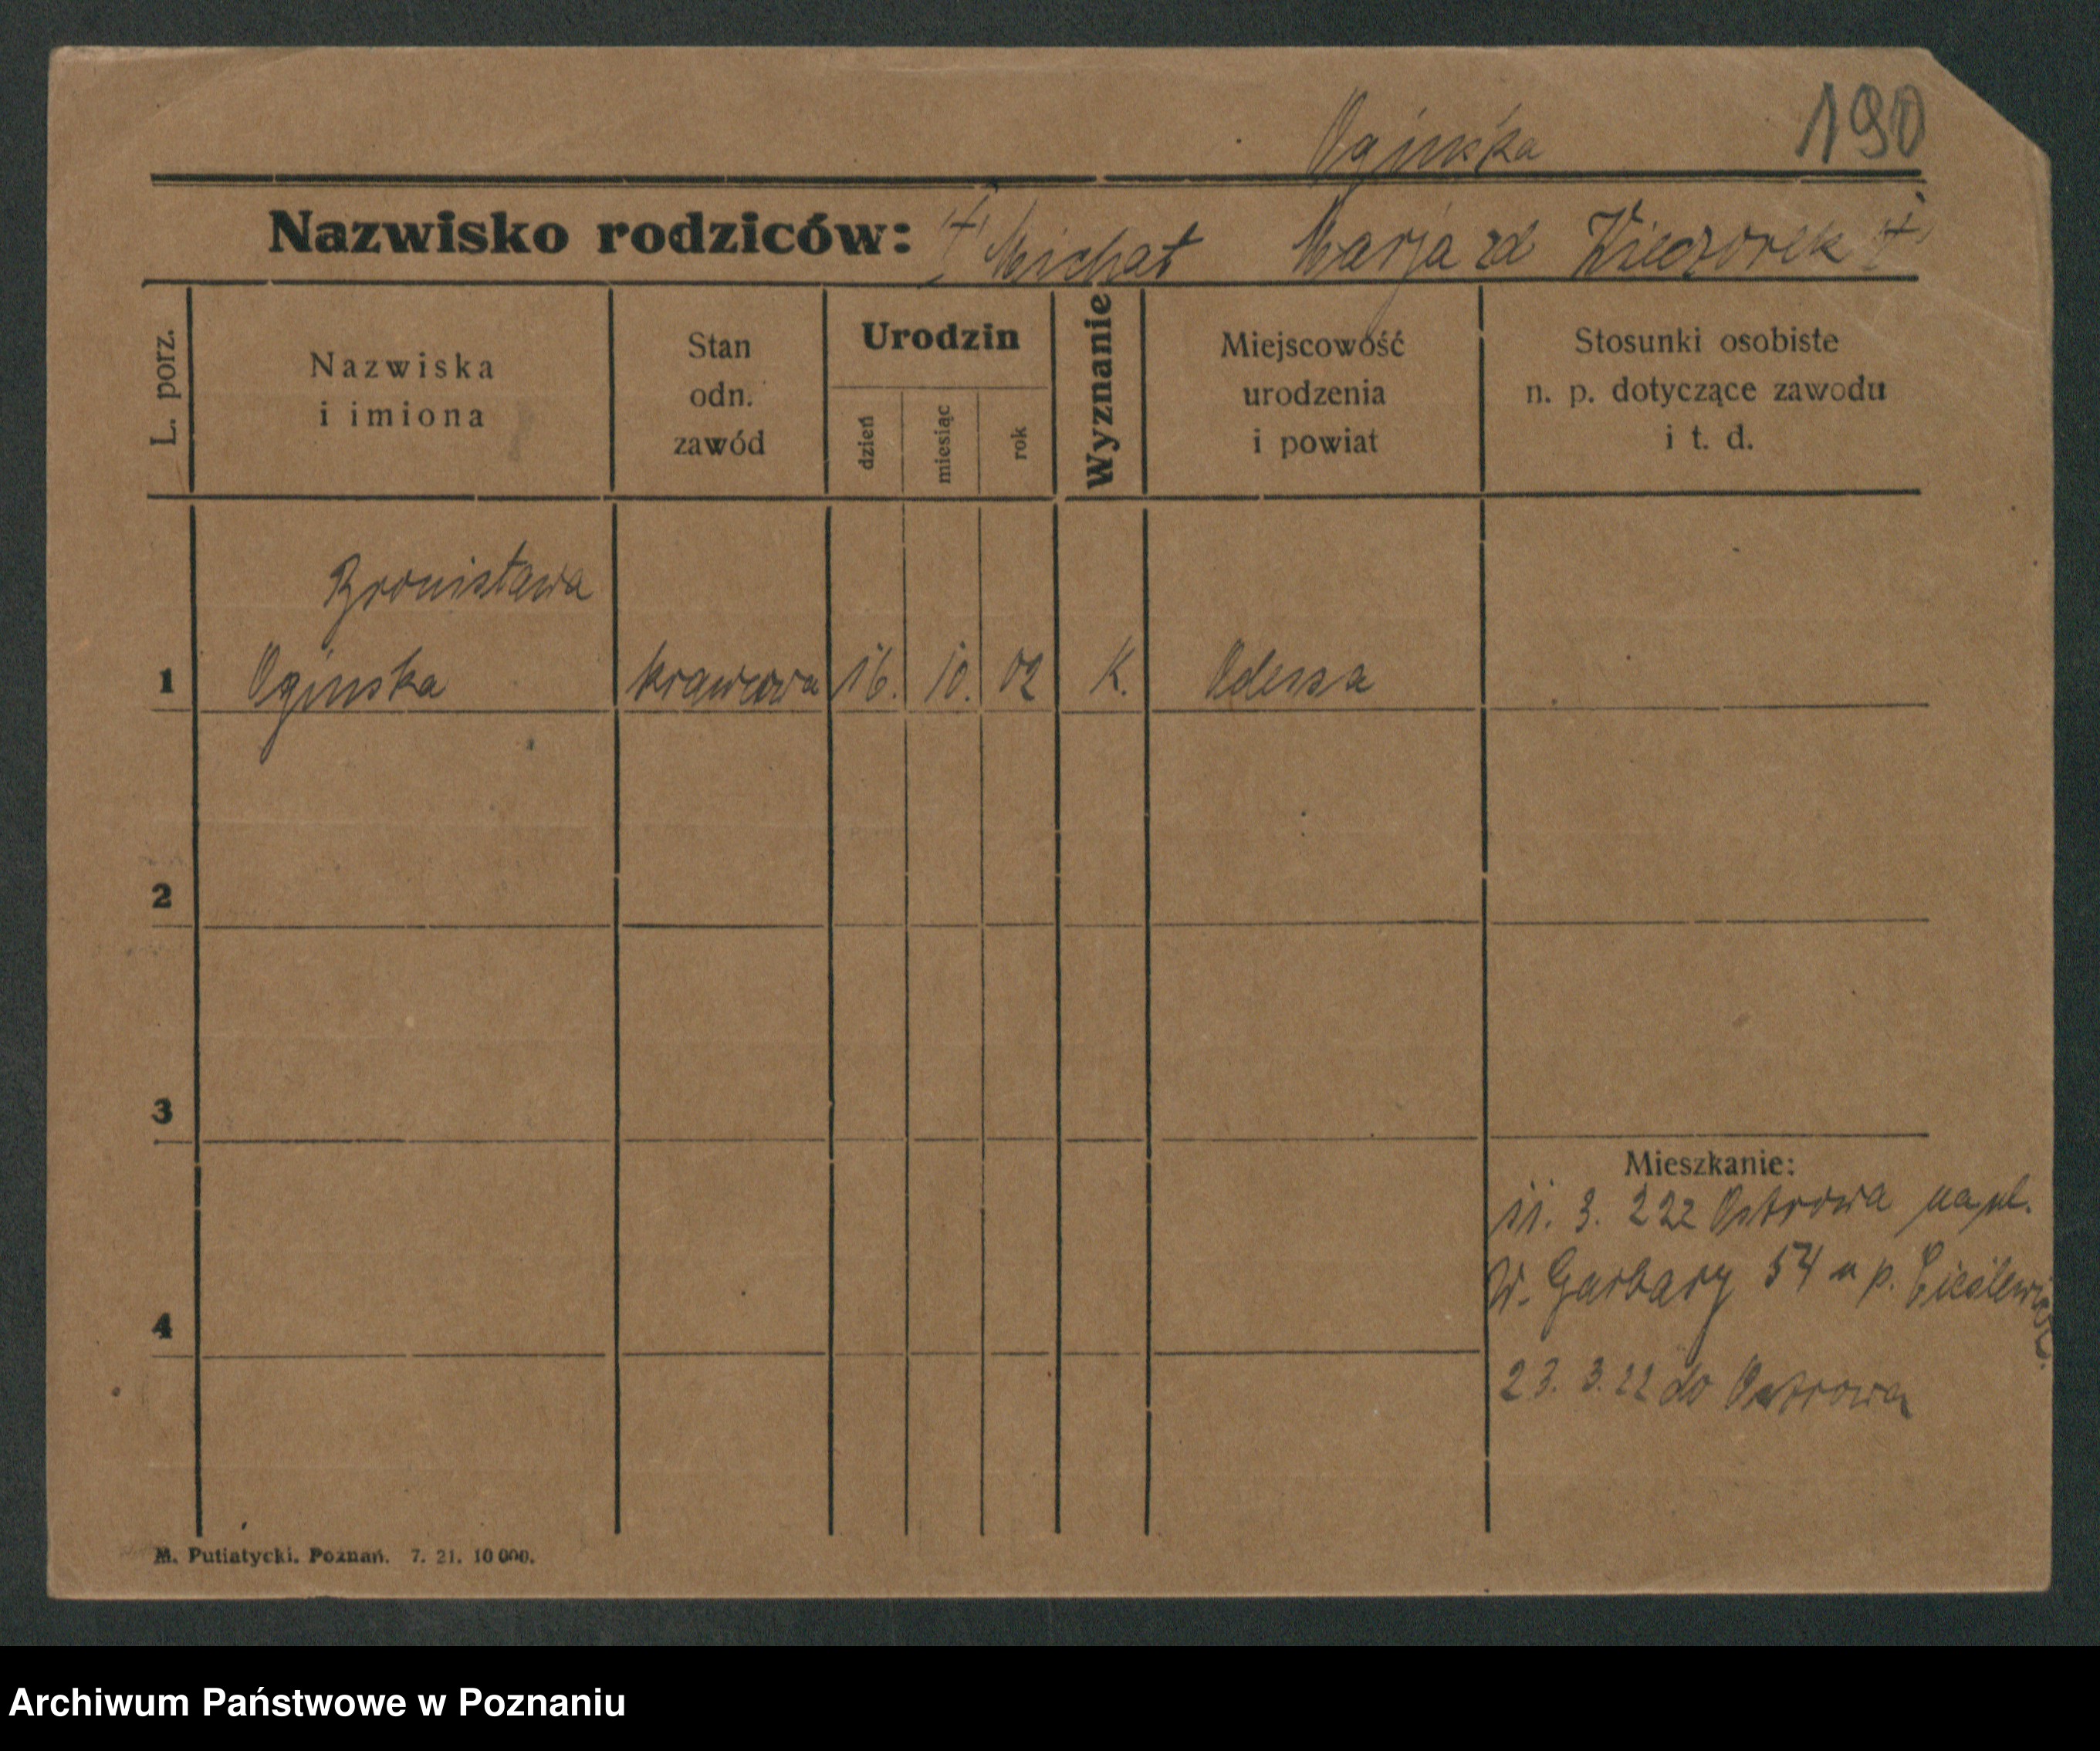 Oginska 190
Nazwisko rodziców: † Michał Marja zd Wieczorek †
L. porz.
Nazwiska
i imiona
Stan
odn.
zawód
Urodzin
dzień
miesiąc
rok
Wyznanie
Miejscowość
urodzenia
i powiat
Stosunki osobiste
n. p. dotyczące zawodu
i t. d.
Bronisława
1 Oginska krawcowa 16. 10. 02 K. Odessa
2
3
Mieszkanie:
11. 3. 22 z Ostrowa na pl.
W. Garbary 54 u p.
4
23. 3. 22 do Ostrowa
M. Putiatycki. Poznań. 7. 21. 10 000.
Archiwum Państwowe w Poznaniu